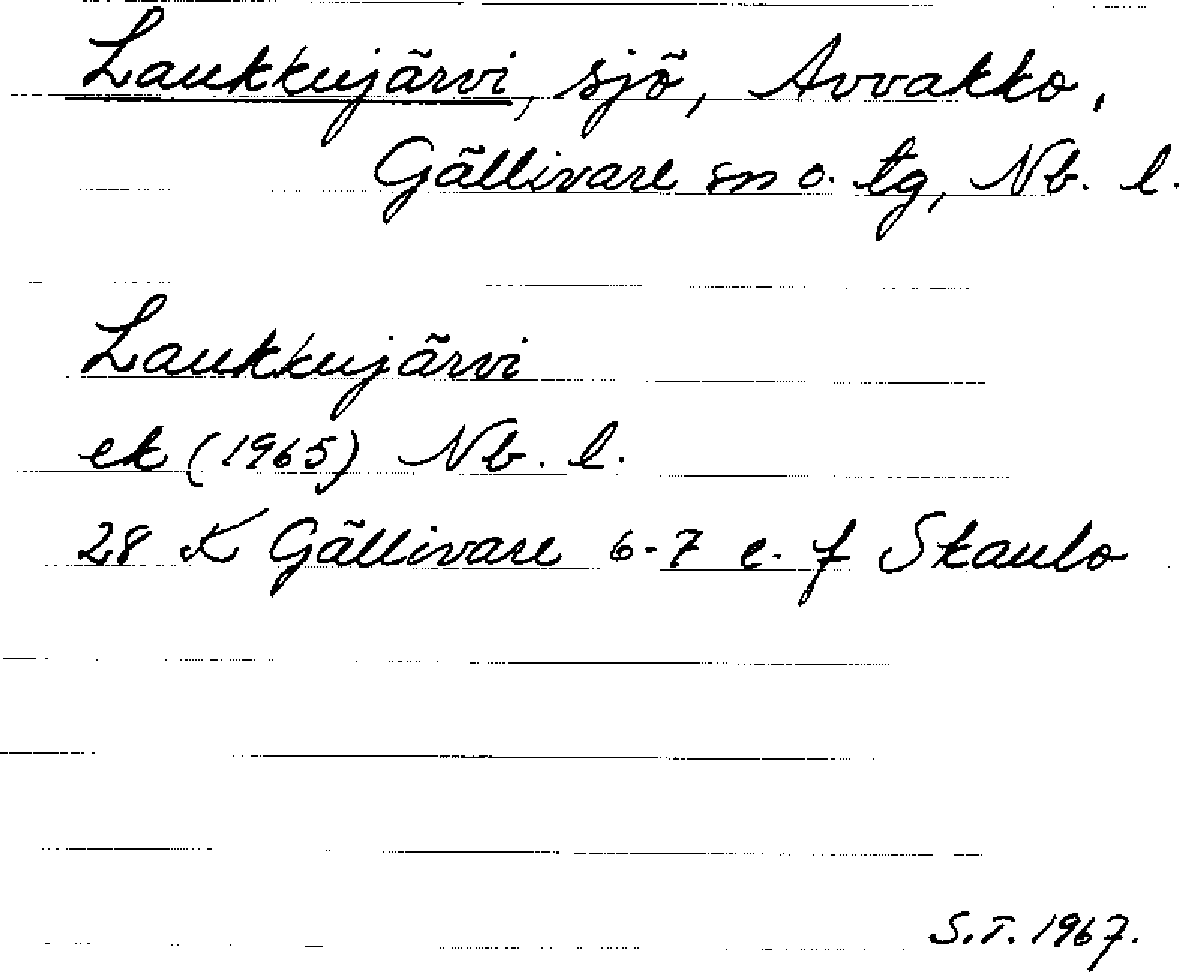 Laukkujärvi, sjö, Avvakko,
Gällivare sn o. tg, Nb. l.
Laukkujärvi
ek (1965) Nb. l.
28 K Gällivare 6-7 e-f Skaulo
S.T. 1967.